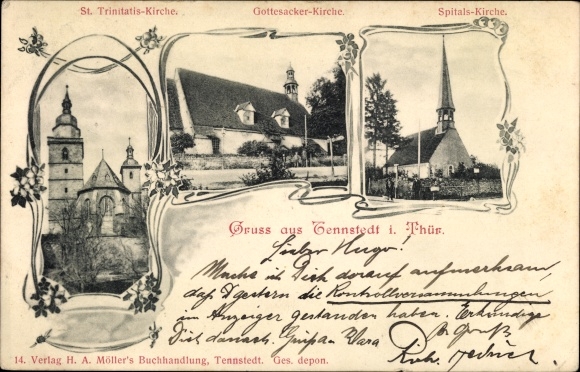 St. Trinitatis-Kirche.
Gottesacker-Kirche.
Spitals-Kirche.
Gruss aus Tennstedt i. Thür.
Lieber Hugo!
Mache ich Dich darauf aufmerksam,
daß gestern die Kontrollversammlungen
im Anzeiger gestanden haben. Erkundige
Dich danach. Grüßen
Gruß
14. Verlag H. A. Möller's Buchhandlung, Tennstedt. Ges. depon.